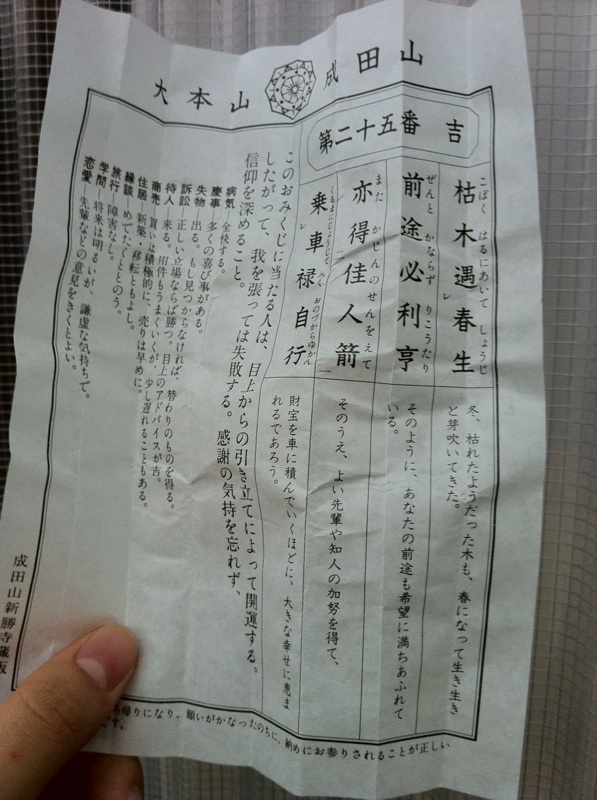 大本山 成田山
第二十五番 吉
枯木遇春生
こぼく はるにあいて しょうじ
レ
冬、枯れたようだった木も、春になって生き生き
と芽吹いてきた。
前途必利亨
ぜんと かならず りこうたり
そのように、あなたの前途も希望に満ちあふれて
いる。
亦得佳人箭
また かじんのせんをえて
二 一
そのうえ、よい先輩や知人の加努を得て、
乗車禄自行
くるまにじょうじて ろく おのづからゆかん
レ
財宝を車に積んでいくほどに、大きな幸せに恵ま
れるであろう。
このおみくじに当たる人は、目上からの引き立てによって開運する。
したがって、我を張っては失敗する。感謝の気持を忘れず、
信仰を深めること。
病気― 全快する。
慶事― 多くの喜び事がある。
失物― 出る。もし見つからなければ、替わりのものを得る。
訴訟― 正しい立場ならば勝つ。目上のアドバイスが吉。
待人― 来る。用件もうまくいくが、少し遅れることもある。
商売― 買いは積極的に、売りは早めに。
住居― 新築、移転ともよし。
縁談― めでたくととのう。
旅行― 障害なし。
学問― 将来は明るいが、謙虚な気持ちで。
恋愛― 先輩などの意見をきくとよい。
成田山新勝寺蔵版
帰りになり、願いがかなったのちに、納めにお参りされることが正しい
です。